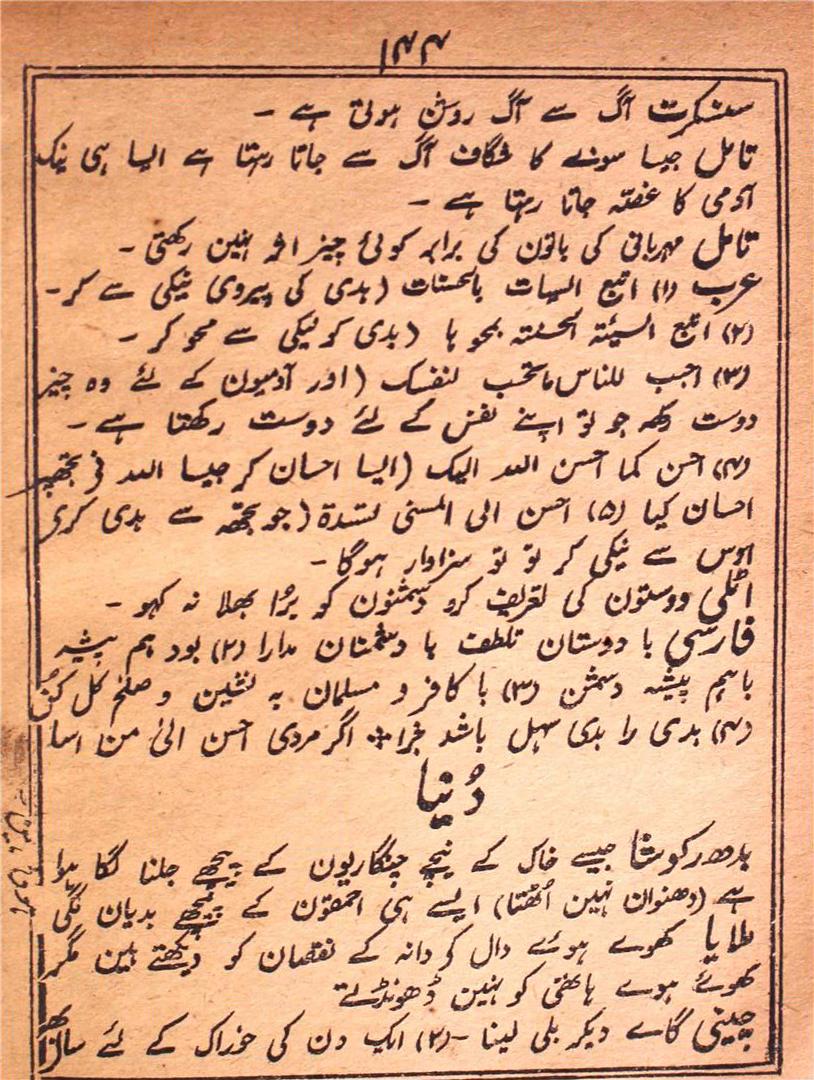 ۱۳۴
سنسکرت آگ سے آگ روشن ہوتی ہے -
تامل جیسا سونے کا شگاف آگ سے جاتا رہتا ہے ایسا ہی نیک
آدمی کا غصّہ جاتا رہتا ہے -
تامل مہربانی کی باتون کی برابر کوئی چیز اثر نہین رکھتی -
عرب (۱) اتبع السیات بالحسنات (بدی کی پیروی نیکی سے کر -
(۲) اتبع السیئۃ الحسنتہ بمحو ہا (بدی کو نیکی سے محو کر -
(۳) احبب للناس ماتحب لنفسک (اور آدمیون کے لئے وہ چیز
دوست رکھہ جو تو اپنے نفس کے لئے دوست رکھتا ہے -
(۴) احسن کما احسن اللہ الیک (ایسا احسان کر جیسا اللہ نی تجھپر
احسان کیا (۵) احسن الی المسئی لسندۃ (جو تجھہ سے بدی کری
اوس سے نیکی کر تو تو سزاوار ہوگا -
اٹلی دوستون کی تعریف کرو دشمنون کو بُرا بھلا نہ کہو -
فارسی با دوستان تلطف با دشمنان مدارا (۲) بود ہم پیشہ
باہم پیشہ دشمن (۳) با کافر و مسلمان بہ نشین و صلح کل کُن
(۴) بدی را بدی سہل باشد جزا ÷ اگر مردی احسن الیٰ من اسا
دُنیا
بدھر کوشا جیسے خاک کے نیچے چنگاریون کے پیچھے جلنا لگا ہوا
ہے (دھنوان نہین اُٹھتا) ایسے ہی احمقون کے پیچھے بدیان لگی
ملایا کھوے ہوئے دال کو دانہ کے نقصان کو دیکھتے ہین مگر
کھوئے ہوے ہاتھی کو نہین ڈھونڈتے
چینی گاے دیکر بلی لینا - (۲) ایک دن کی خوراک کے لئے ساڑا بھر